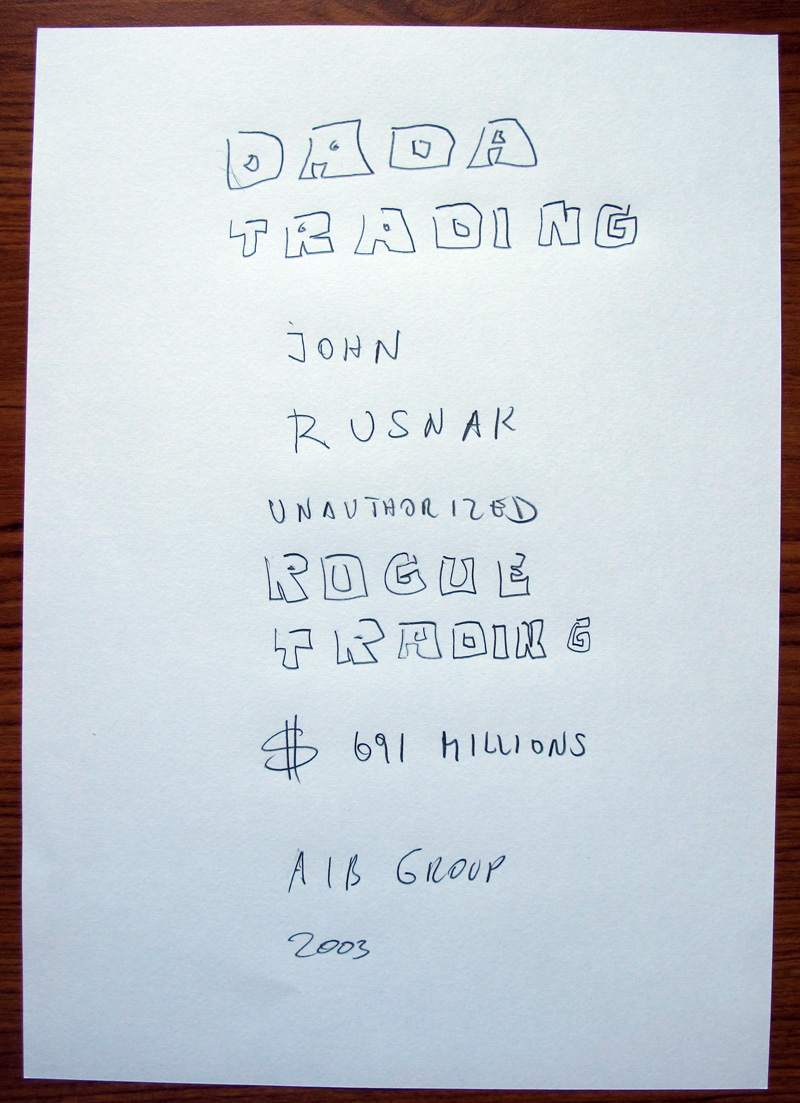 DADA
TRADING
JOHN
RUSNAK
UNAUTHORIZED
ROGUE
TRADING
$ 691 MILLIONS
AIB GROUP
2003